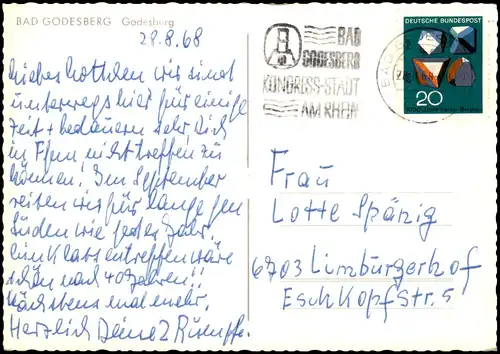 BAD GODESBERG Godesburg
28.8.68
Liebes Lottchen wir sind
unterwegs hier für einige
Zeit + bedauern sehr, Dich
in Ffm nicht treffen zu
können! Im September
reisen wir für lange gen
Süden wie jedes Jahr.
ein Klassentreffen wäre
schön nach 40 Jahren!!
Nächstens mal mehr.
Herzlich Deine 2
BAD
GODESBERG
KONGRESS-STADT
AM RHEIN
DEUTSCHE BUNDESPOST
20
Frau
Lotte Spänig
6703 Limburgerhof
Eschkopfstr. 5